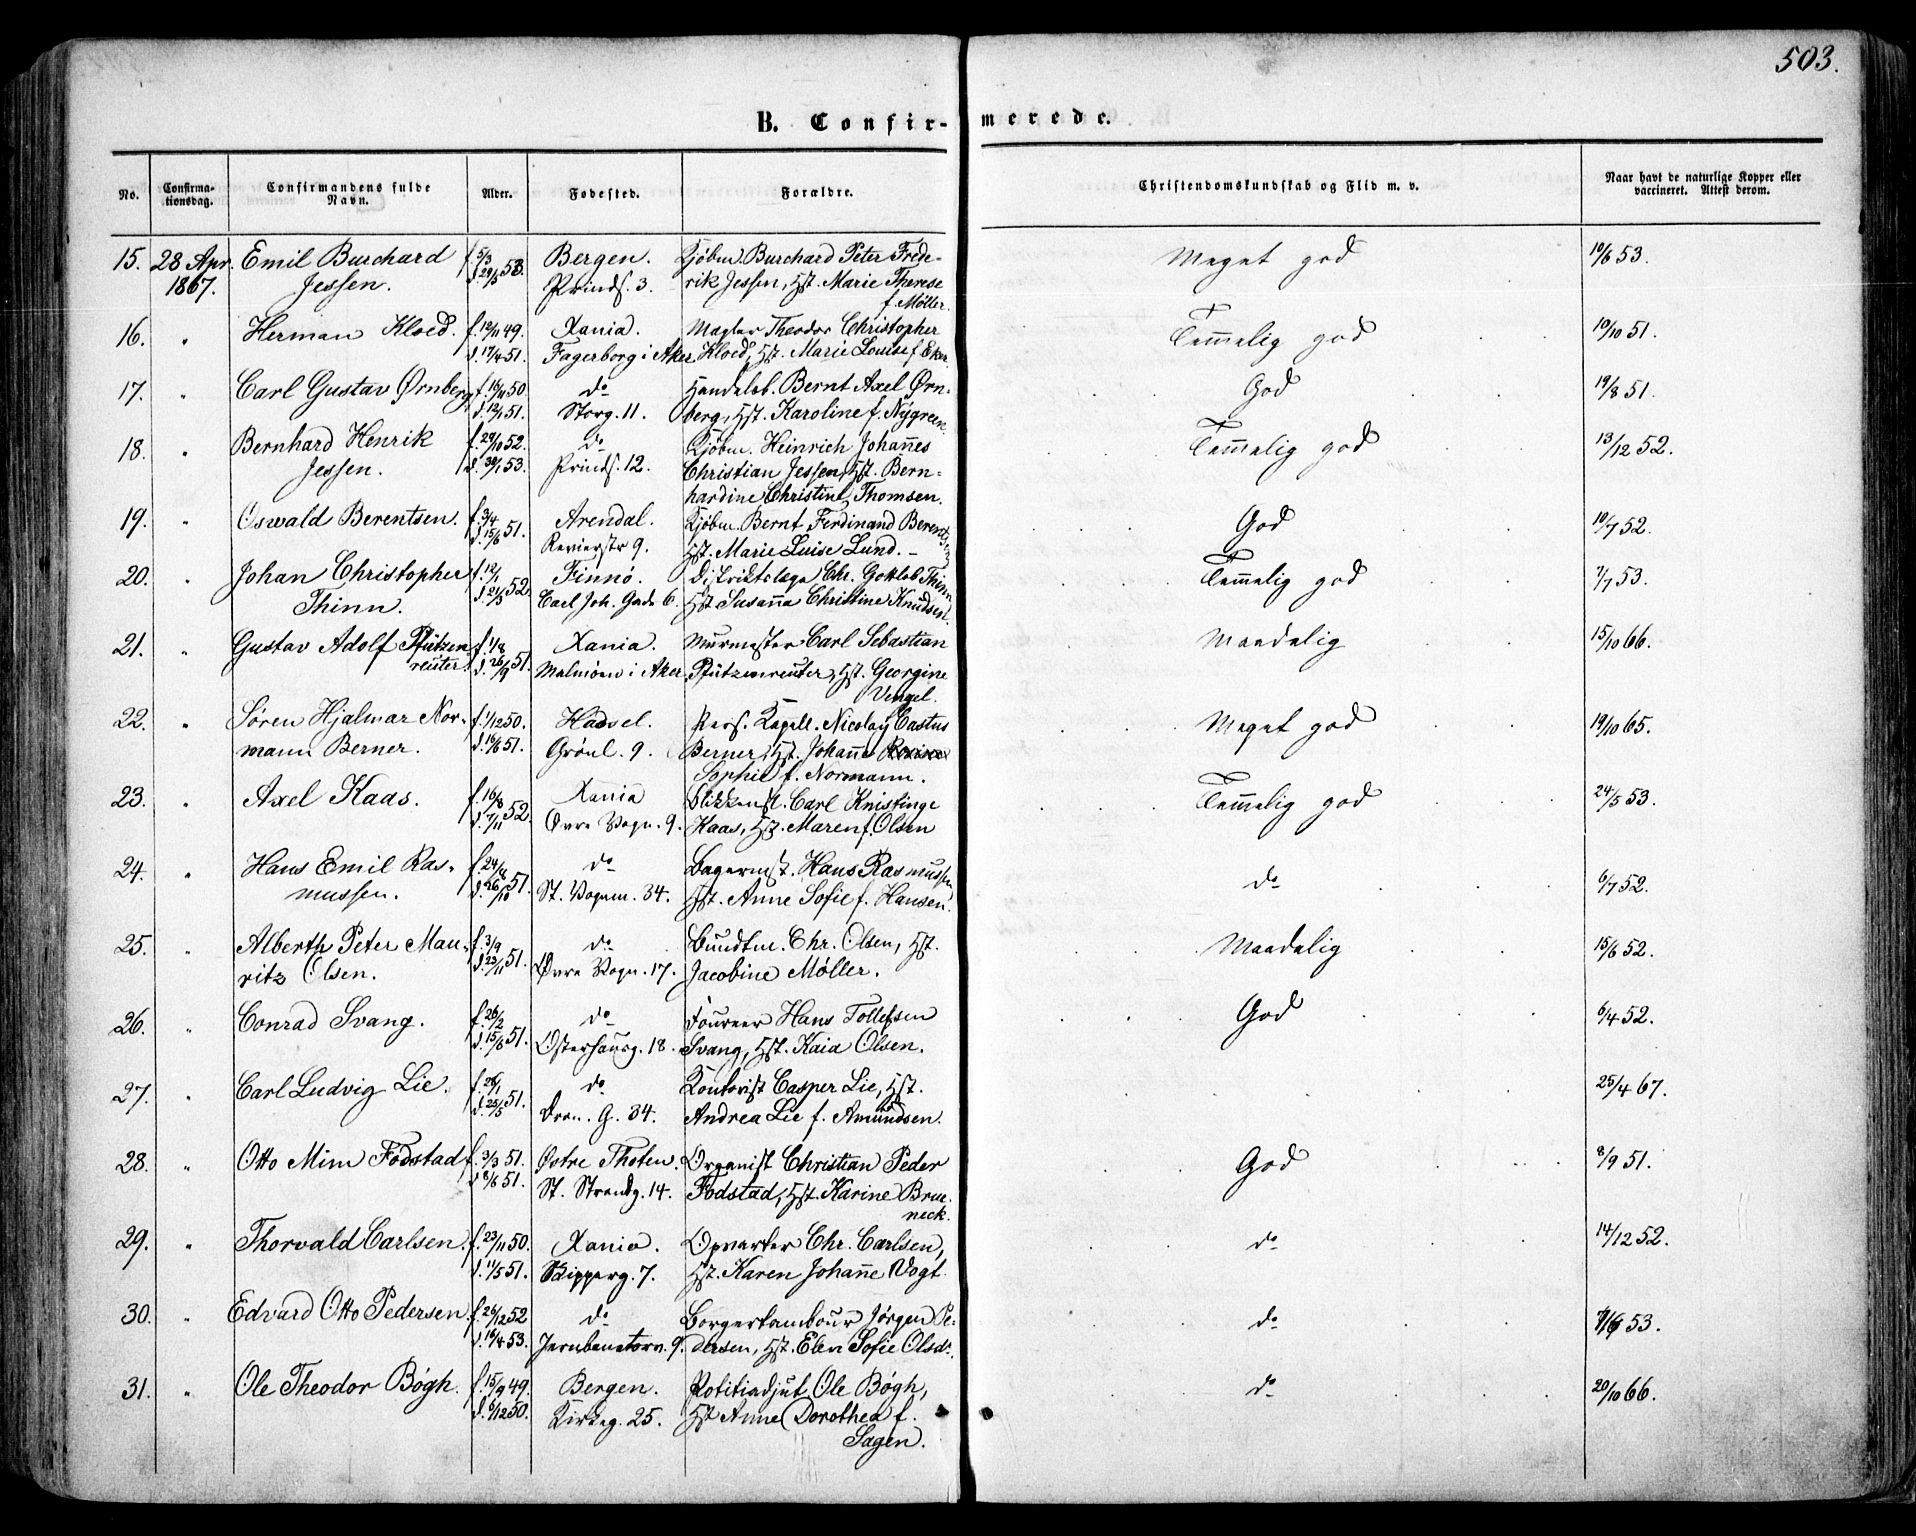 503.
B. Confir-merede.
No. Confirmationsdag. Confirmandens fulde Navn. Alder. Fødested. Forældre. Christendomskundskab og Flid m. v. Naar havt de naturlige Kopper eller vaccineret. Attest derom.
15. 28 Apr. Emil Burchard f. 5/3 Bergen. Kjøbm. Burchard Peter Frede- Meget god 10/6 53.
1867. Jessen. d. 29/5 53. Prinds. 3. rik Jessen, Hst. Marie Therese
f. Møller.
16. " Herman Kloed. f. 12/11 49. Xania. Mægler Theodor Christopher Temmelig god 10/10 51.
d. 17/4 51. Fagerborg i Aker Kloed, Hst. Marie Louise f. Eker.
17. " Carl Gustav Ørnberg, f. 16/11 50 do Handelsb. Bernt Axel Ørn- God 19/8 51.
d. 12/1 51. Storg. 11. berg, Hst. Karoline f. Nygreen.
18. " Bernhard Henrik f. 28/10 52. do Kjøbm. Heinrich Johannes Temmelig god 13/12 52.
Jessen. d. 30/1 53. Prinds. 12. Christian Jessen, Hst. Bern-
hardine Christine Thomsen.
19. " Oswald Berentsen. f. 3/4 Arendal. Kjøbm. Bernt Ferdinand Berentsen God 10/7 52.
d. 15/6 51. Revierstr 9. Hst. Marie Luise Lund. -
20. " Johan Christopher f. 12/1 Finnö. Distriktslæge Chr. Gottlob Thinn Temmelig god 7/7 53.
Thinn. d. 21/5 52. Carl Joh. Gade 6. Hst. Susanna Christine Knudsen.
21. " Gustav Adolf Pfützen f. 1/8 Xania. Murmester Carl Sebastian Maadelig 15/10 66.
reuter. d. 26/9 51. Malmöen i Aker. Pfützenreuter, Hst. Georgine
Vengel.
22. " Søren Hjalmar Nor- f. 1/12 50. Hadsel. Pers. Kapell. Nicolay Castus Meget god 19/10 65.
mann Berner. d. 16/6 51. Grönl. 9. Berner, Hst. Johanne
Sophie f. Normann.
23. " Axel Kaas. f. 16/8 Xania Blikkensl. Carl Knipfinge Temmelig god 24/5 53.
d. 7/11 52. Övre Vogn. 9. Kaas, Hst. Maren f. Olsen
24. " Hans Emil Ras- f. 24/8 do Bagermst. Hans Rasmussen do 6/7 52.
mussen. d. 26/10 51. St. Vognm. 34. Hst. Anne Sofie f. Hansen.
25. " Alberth Peter Mau- f. 3/9 do Bundtm. Chr. Olsen, Hst. Maadelig 15/6 52.
ritz Olsen. d. 23/11 51. Övre Vogn. 17. Jacobine Møller.
26. " Conrad Svang. f. 26/2 do Foureer Hans Tollefsen God 6/4 52.
d. 15/6 51. Osterhausg. 18. Svang, Hst. Kaia Olsen.
27. " Carl Ludvig Lie. f. 26/1 do Kontorist Casper Lie, Hst. 25/4 67.
d. 25/5 51. Dron. G. 34. Andrea Lie f. Amundsen.
28. " Otto Mim Fodstad f. 3/3 51. Østre Thoten. Organist Christian Peder God 8/9 51.
d. 8/6 51. St. Strandg. 14. Fodstad, Hst. Karine Brue-
neck.
29. " Thorvald Carlsen. f. 23/11 50. Xania. Opvarter Chr. Carlsen, do 14/12 52.
d. 11/5 51. Skipperg. 7. Hst. Karen Johanne Vogt.
30. " Edvard Otto Pedersen. f. 26/12 52 do Borgertambour Jørgen Pe- do 53.
d. 16/4 53. Jernbanetorv. 9. dersen, Hst. Elen Sofie Olsdr.
31. " Ole Theodor Bögh. f. 15/9 49. Bergen. Politiadjut. Ole Bögh, do 20/10 66.
d. 6/12 50. Kirkeg. 25. Hst. Anne Dorothea f.
Sagen.